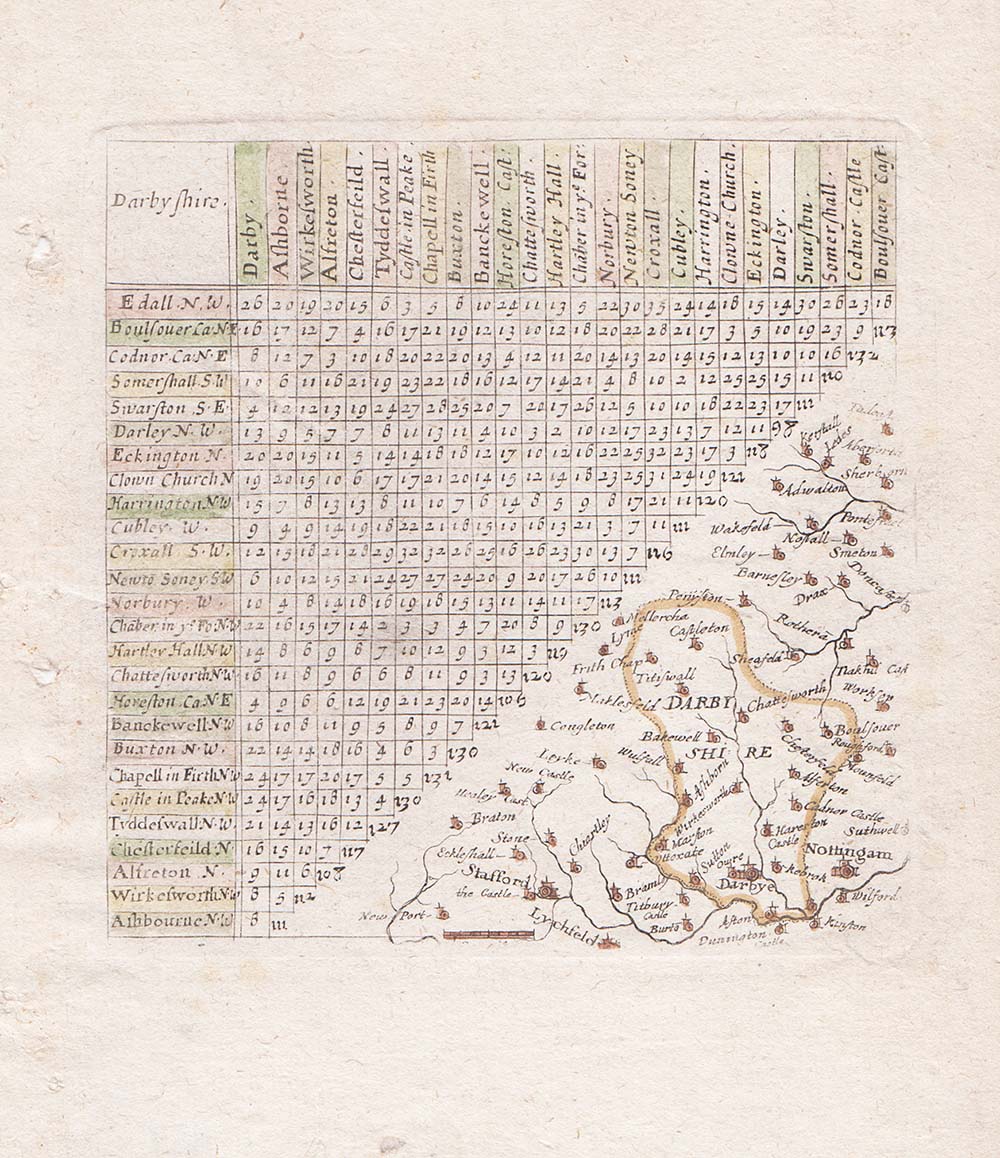 Darbyshire.
Darby.
Ashborne
Wirkesworth
Alfreton.
Chesterfeild.
Tyddeswall.
Castle in Peake.
Chapell in Firth
Buxton.
Banckewell.
Horeston Cast:
Chattesworth.
Hartley Hall.
Chãber in yᵉ For:
Norbury.
Newton Soney
Croxall.
Cubley.
Harrington.
Clowne Church.
Eckington.
Darley.
Swarston.
Somershall.
Codner Castle
Boulsouer Cast.
Edall N.W. 26 20 19 20 15 6 3 5 8 10 24 11 13 5 22 30 35 24 14 18 15 14 30 28 23 18
Boulsouer Ca.N.E 16 17 12 7 4 16 17 21 19 12 13 10 12 18 20 22 28 21 17 3 5 10 19 23 9 113
Codnor Ca. N.E 8 12 7 3 10 18 20 22 20 13 4 12 11 20 14 13 20 14 15 12 13 10 10 16 132
Somershall S.W 10 6 11 16 21 19 23 22 18 16 12 17 14 21 4 8 10 2 12 25 25 15 11 110
Swarston S.E. 4 12 12 13 19 24 27 28 25 20 7 20 17 26 12 5 10 10 18 22 23 17 111
Darley N.W. 13 9 5 7 7 8 11 13 11 4 10 3 2 10 12 17 23 13 7 12 11 98
Eckington N. 20 20 15 11 5 14 14 18 18 12 17 10 12 16 22 25 32 23 17 3 118
Clown Church N 19 20 15 10 6 17 17 21 20 14 15 12 14 18 23 25 31 24 19 121
Harrington N.W 15 7 8 13 13 8 11 10 7 6 14 8 5 9 8 17 21 11 120
Cubley. W. 9 4 9 14 19 18 22 21 18 15 10 16 13 21 3 7 11 111
Croxall S.W. 12 15 18 21 28 29 32 32 28 25 16 26 23 30 13 7 116
Newtõ Soney S.W 6 10 12 15 21 24 27 27 24 20 9 20 17 26 10 111
Norbury. W. 10 4 8 14 18 16 19 18 15 13 11 14 11 17 113
Chãber in yᵉ Fo: N.W 22 16 15 17 14 2 3 3 4 7 20 8 9 130
Hartley Hall N.W 14 8 6 9 8 7 10 12 9 3 12 3 119
Chattesworth N.W 16 11 8 9 6 6 8 11 9 3 13 120
Horeston Ca. N.E 4 9 6 6 12 19 21 23 20 14 106
Banckewell N.W 16 10 8 11 9 5 8 9 7 121
Buxton N.W. 22 14 14 18 16 4 6 3 130
Chapell in Firth N.W 24 17 17 20 17 5 5 131
Castle in Peake N.W 24 17 16 18 13 4 130
Tyddeswall N.W. 21 14 13 16 12 127
Chesterfeild N. 16 15 10 7 117
Alfreton N. 9 11 6 108
Wirkesworth N.W 8 5 112
Ashbourne N.W 8 111
Kerstall
Ledes
Aberforth
Sherborn
Adwalton
Wakefeld
Pontefret
Nostall
Elmley
Smeton
Barnesley
Drax
Doncaster
Penyston
Mellercha
Lyme
Castleton
Rothera
Sheafeld
Frith Chap
Titiswall
Chattesworth
Worksop
Maklesfeld
DARBY
SHIRE
Congleton
Bakewell
Boulsouer
Chesterfeld
Leeke
New Castle
Ashborn
Alferton
Wirkesworth
Codnor Castle
Suthwell
Braton
Stone
Chartley
Marston
Harerston
Castle
Nottingam
Eckleshall
Stafford
the Castle
Darbye
Bramly
Titbury
Castle
Wilford
New Port
Lychfeld
Burtõ
Aston
Dunnington
Castle
Kinston